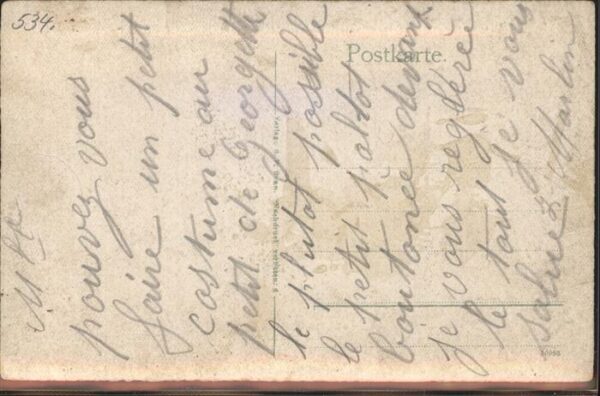 534.
Postkarte.
Mlle
pouvez vous
faire un petit
costume au
petit de Georgette
le plutot possible
le petit paltot
boutonee devant
je vous reglerée
le tout je vous
salue
Martin